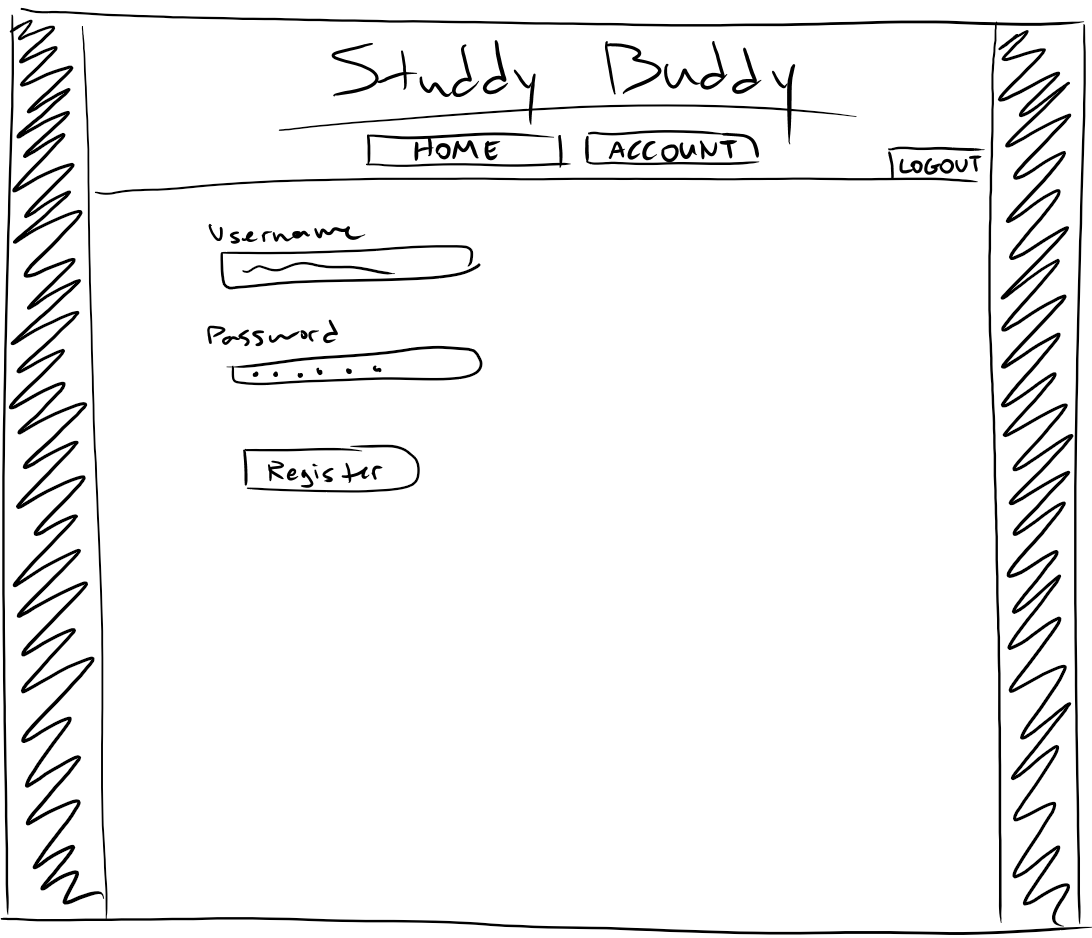 Studdy Buddy
HOME ACCOUNT LOGOUT
Username
Password
Register